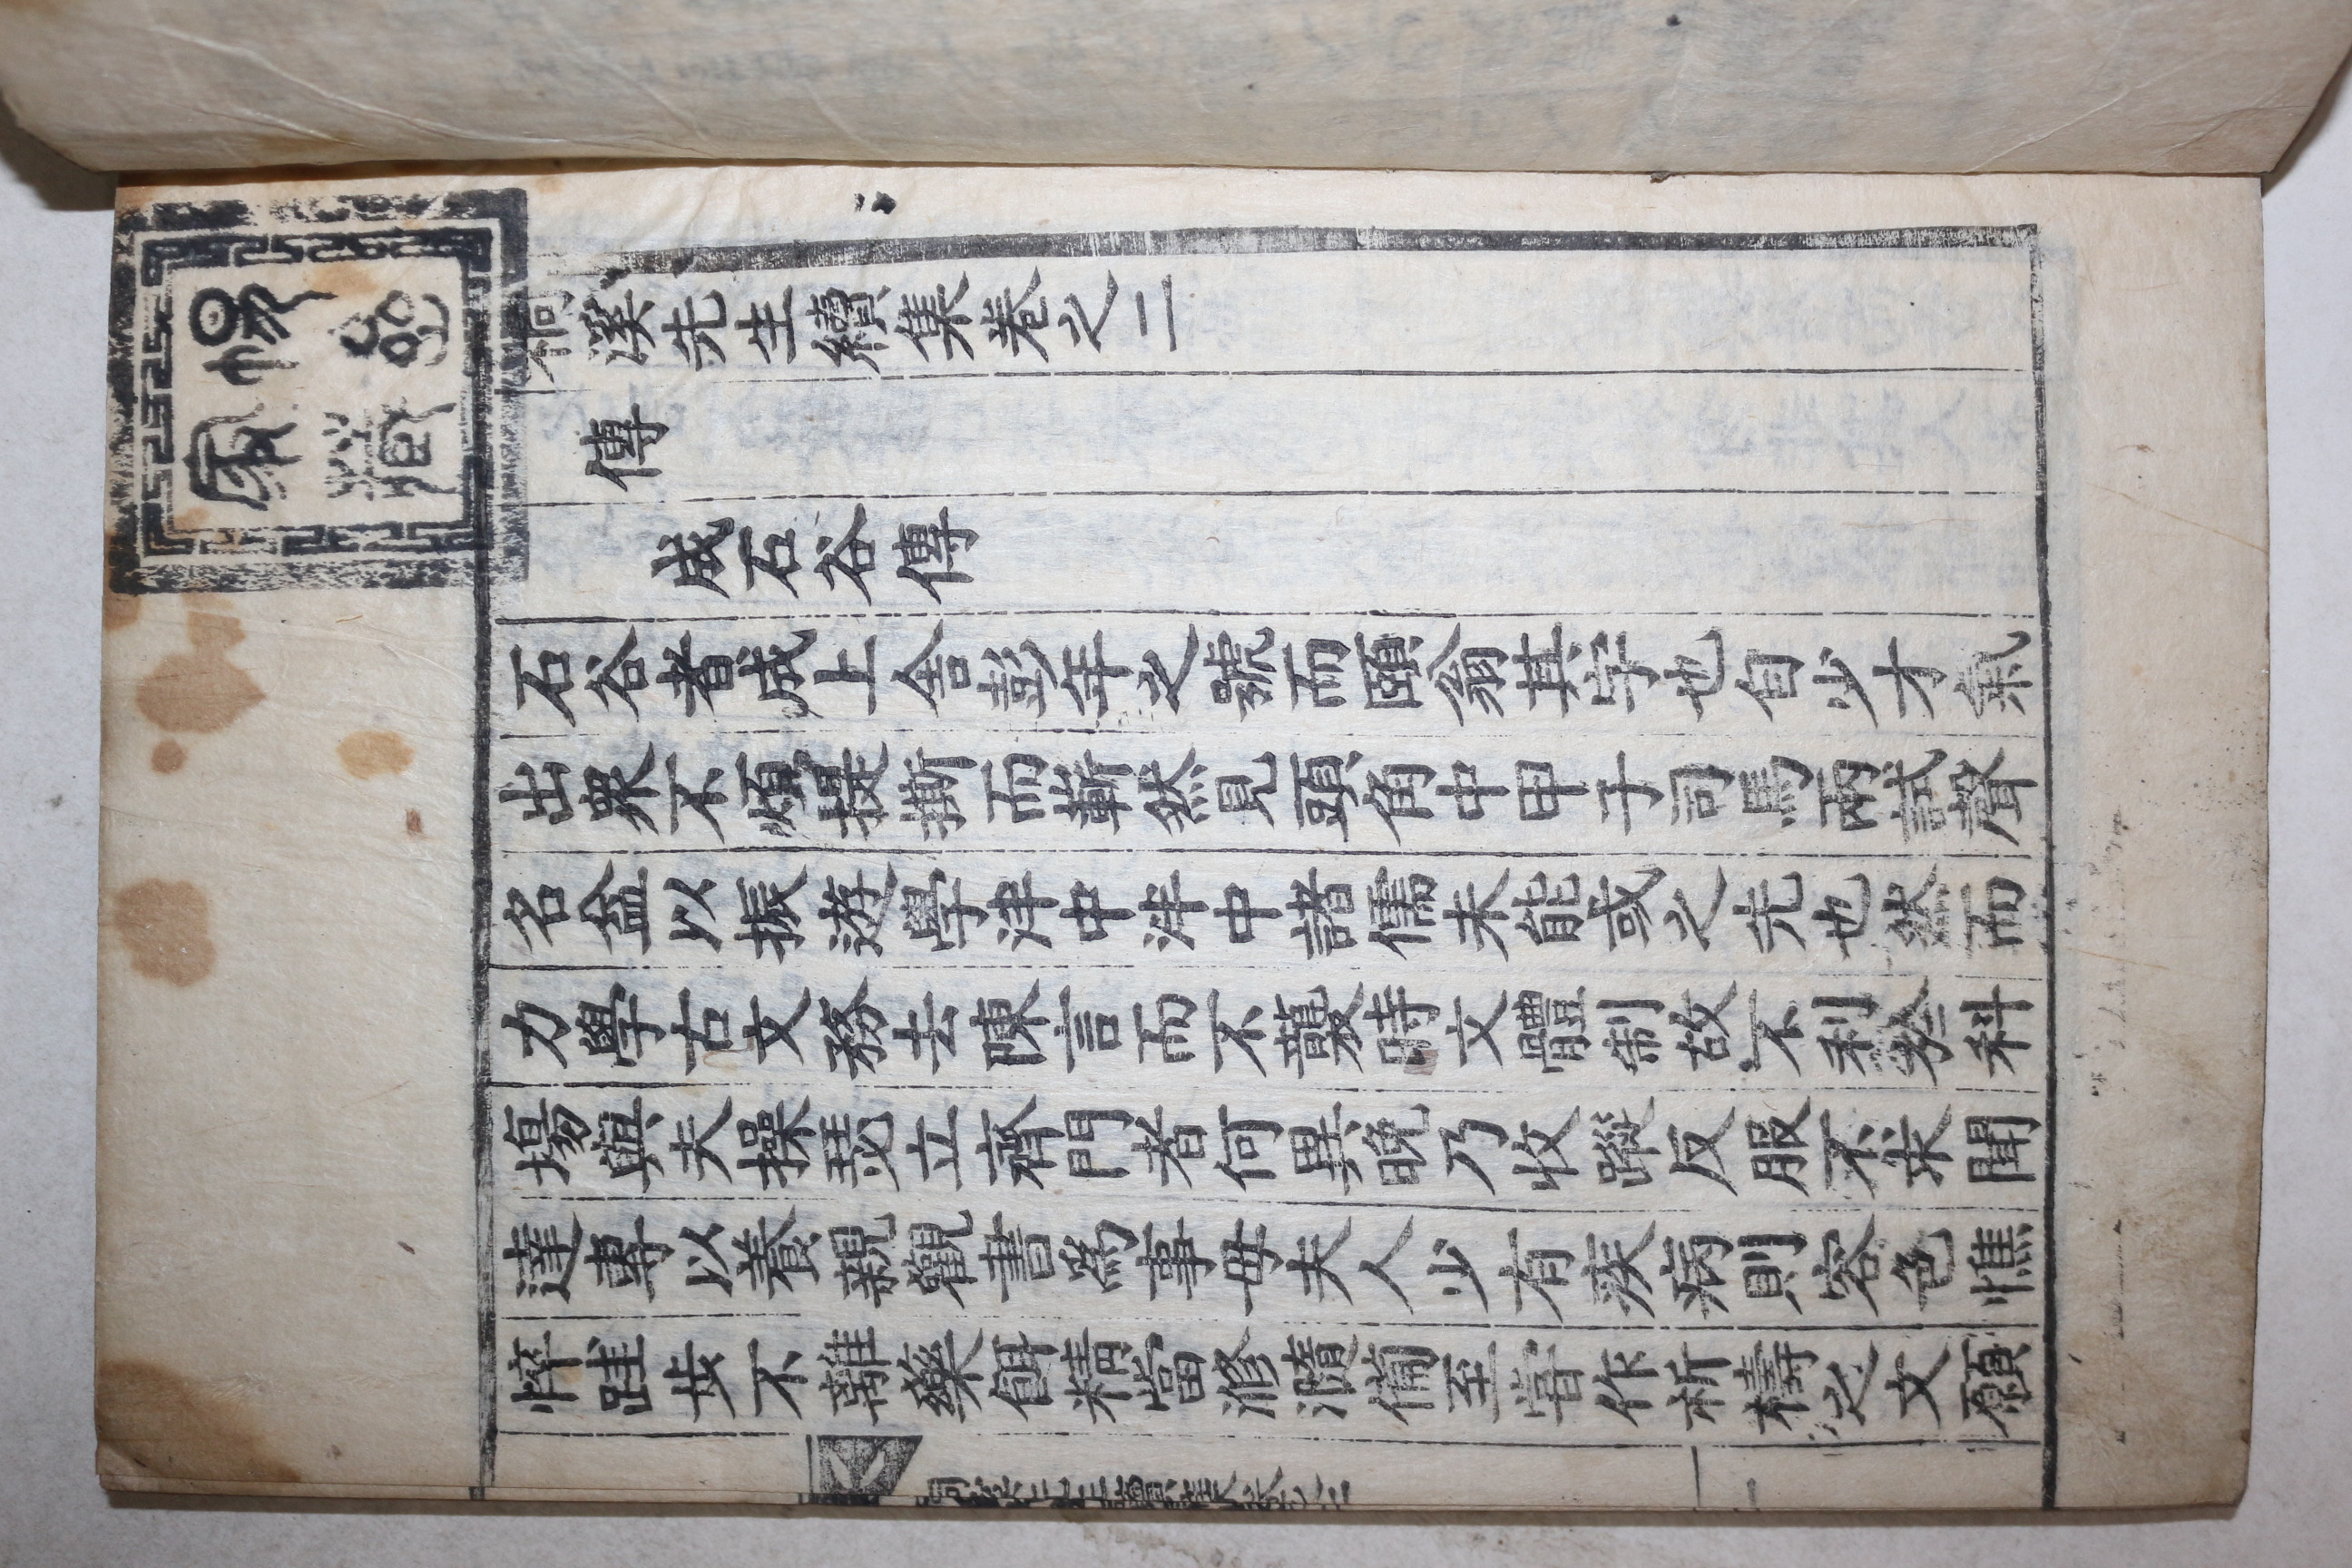 桐溪先生續集卷之二
傳
成石谷傳
石谷者成上舍彭年之號而頤翁其字也自少才氣
出衆不煩提撕而嶄然見頭角中甲子司馬兩試聲
名益以振游學泮中泮中諸儒未能或之先也然而
力學古文務去陳言而不襲時文體制故不利於科
場與夫操瑟立齊門者何異晚乃收蹤反服不求聞
達專以養親觀書爲事母夫人少有疾病則容色憔
悴跬步不離藥餌精當滫瀡備至嘗作祈禱之文願
桐溪先生續集卷之
家藏